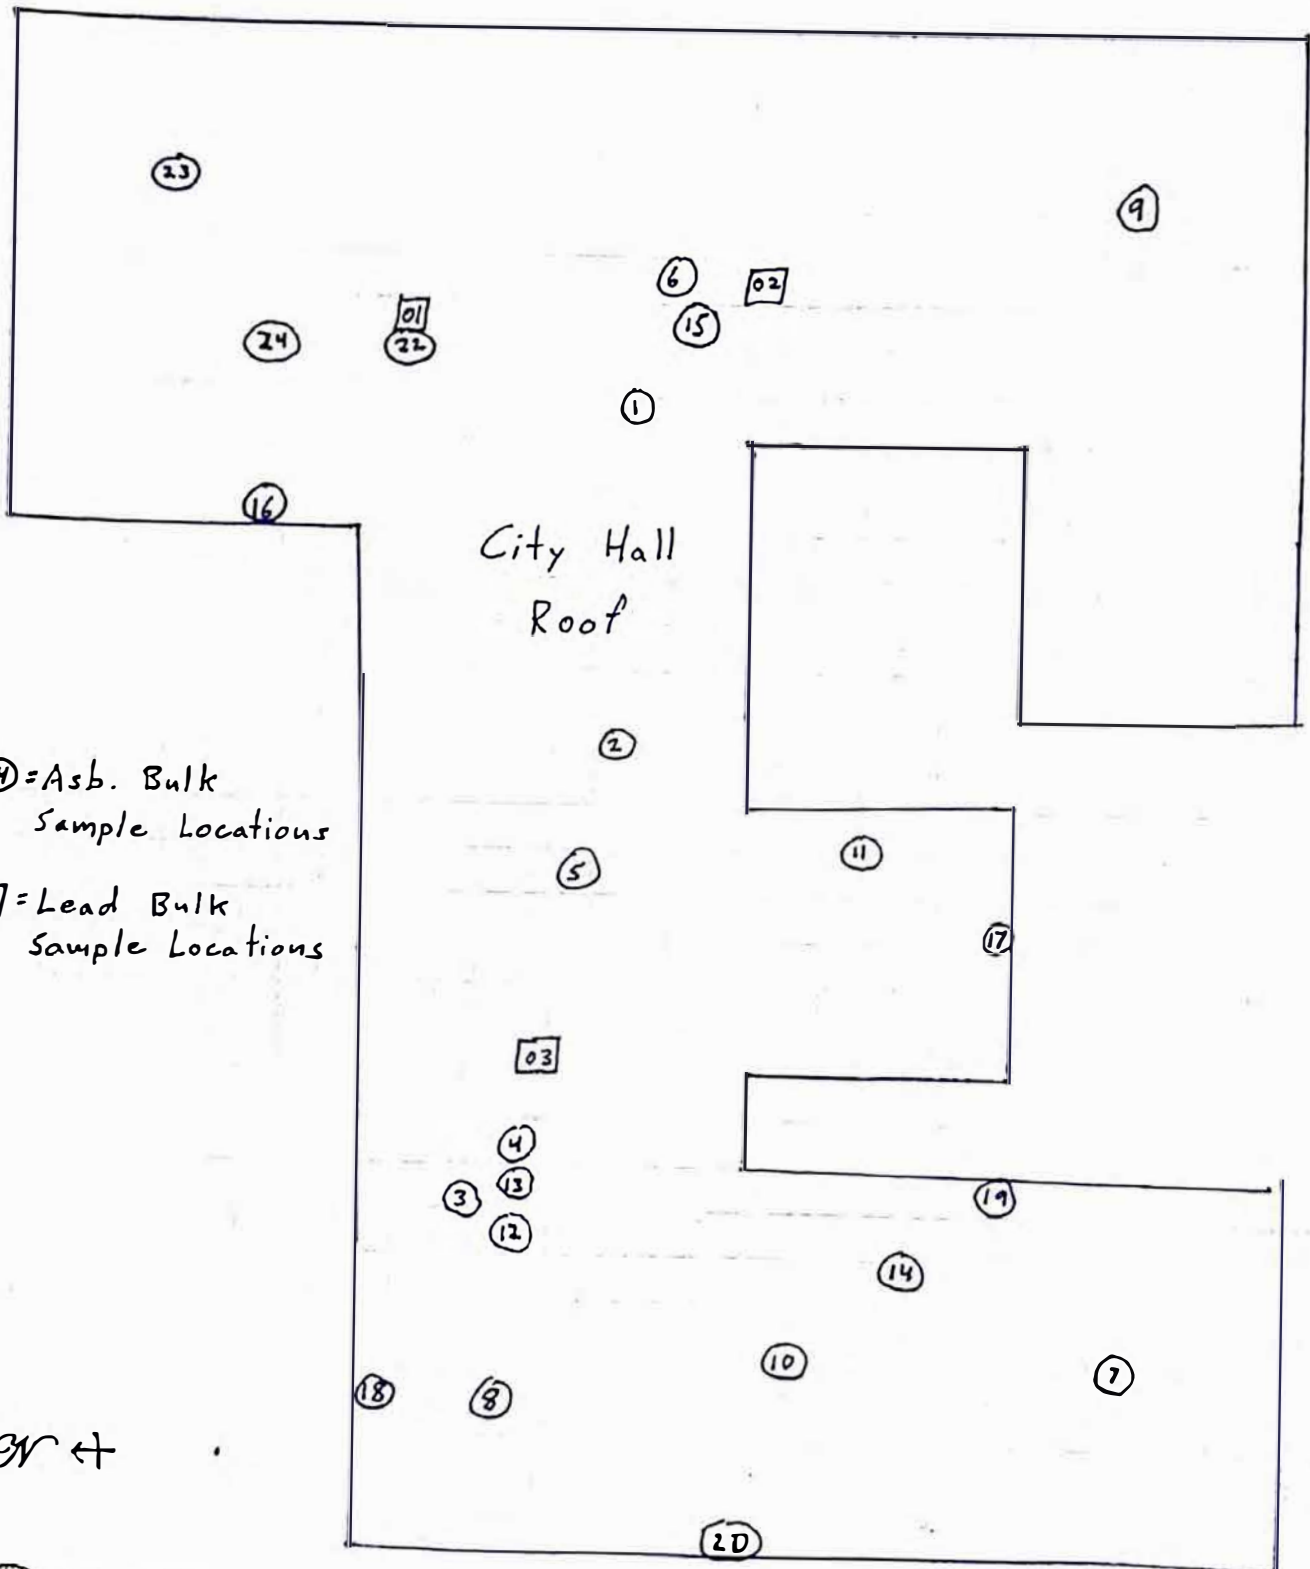 23
9
6
02
01
15
24
22
1
16
City Hall
Roof
2
=Asb. Bulk
Sample Locations
5
11
=Lead Bulk
Sample Locations
17
03
4
13
3
19
12
14
10
7
18
8
N
20